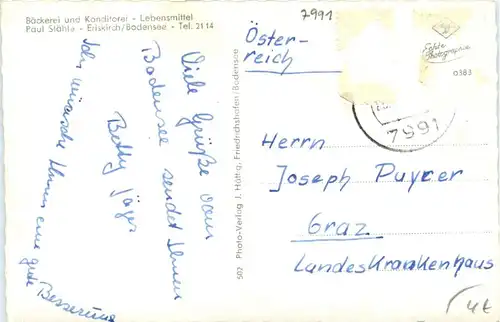 Bäckerei und Konditorei - Lebensmittel
Paul Stähle - Eriskirch/Bodensee - Tel. 2114
7991
Öster-
reich
Echte
Photographie
0383
7991
Viele Grüße vom
Bodensee sendet Ihnen
Betty Jäger
Ich wünsche Ihnen eine gute
Besserung
502 Photo-Verlag J. Hüttig, Friedrichshafen/Bodensee
Herrn
Joseph Puyrer
Graz
Landeskrankenhaus
4€